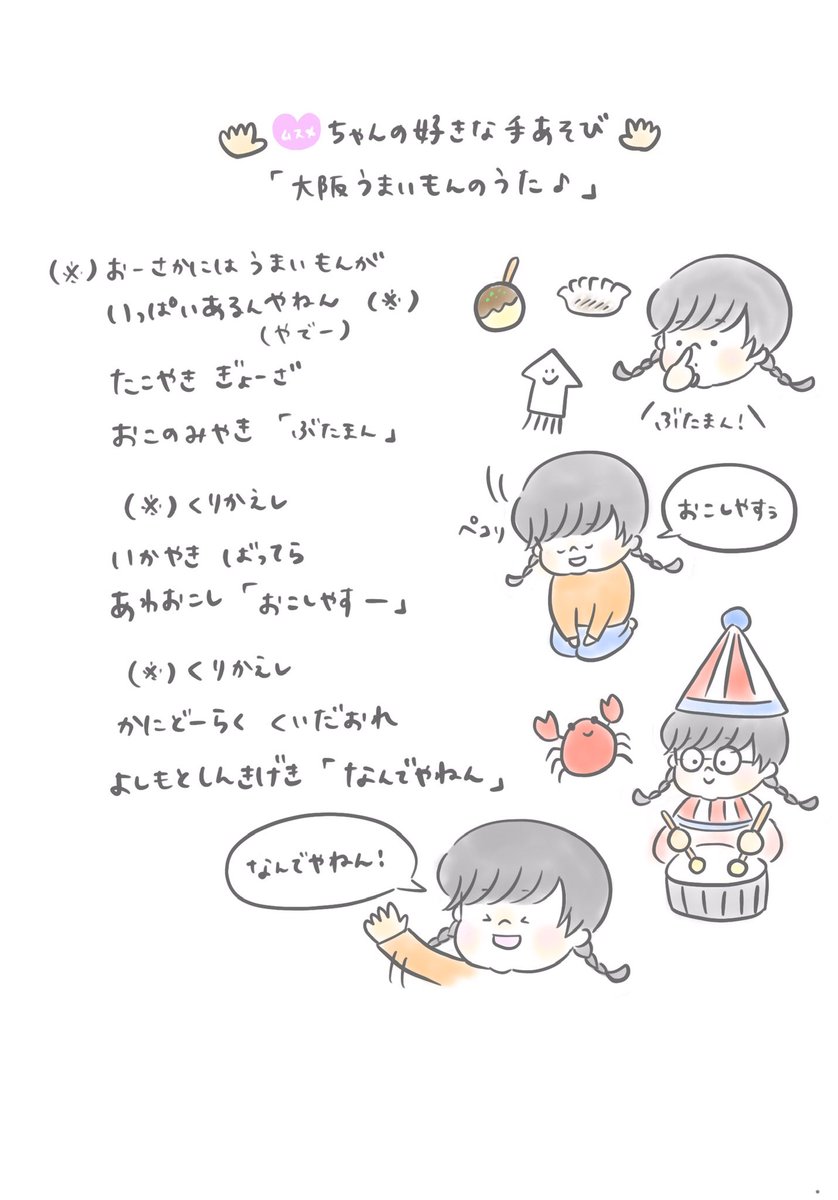 ムスメちゃんの好きな手あそび
「大阪うまいもんのうた♪」
(※)おーさかには うまいもんが
いっぱいあるんやねん (※)
(やでー)
たこやき ぎょーざ
おこのみやき「ぶたまん」
ぶたまん!
(※)くりかえし
いかやき ばってら
あわおこし「おこしやすー」
ペコリ
おこしやすぅ
(※)くりかえし
かにどーらく くいだおれ
よしもとしんきげき「なんでやねん」
なんでやねん!